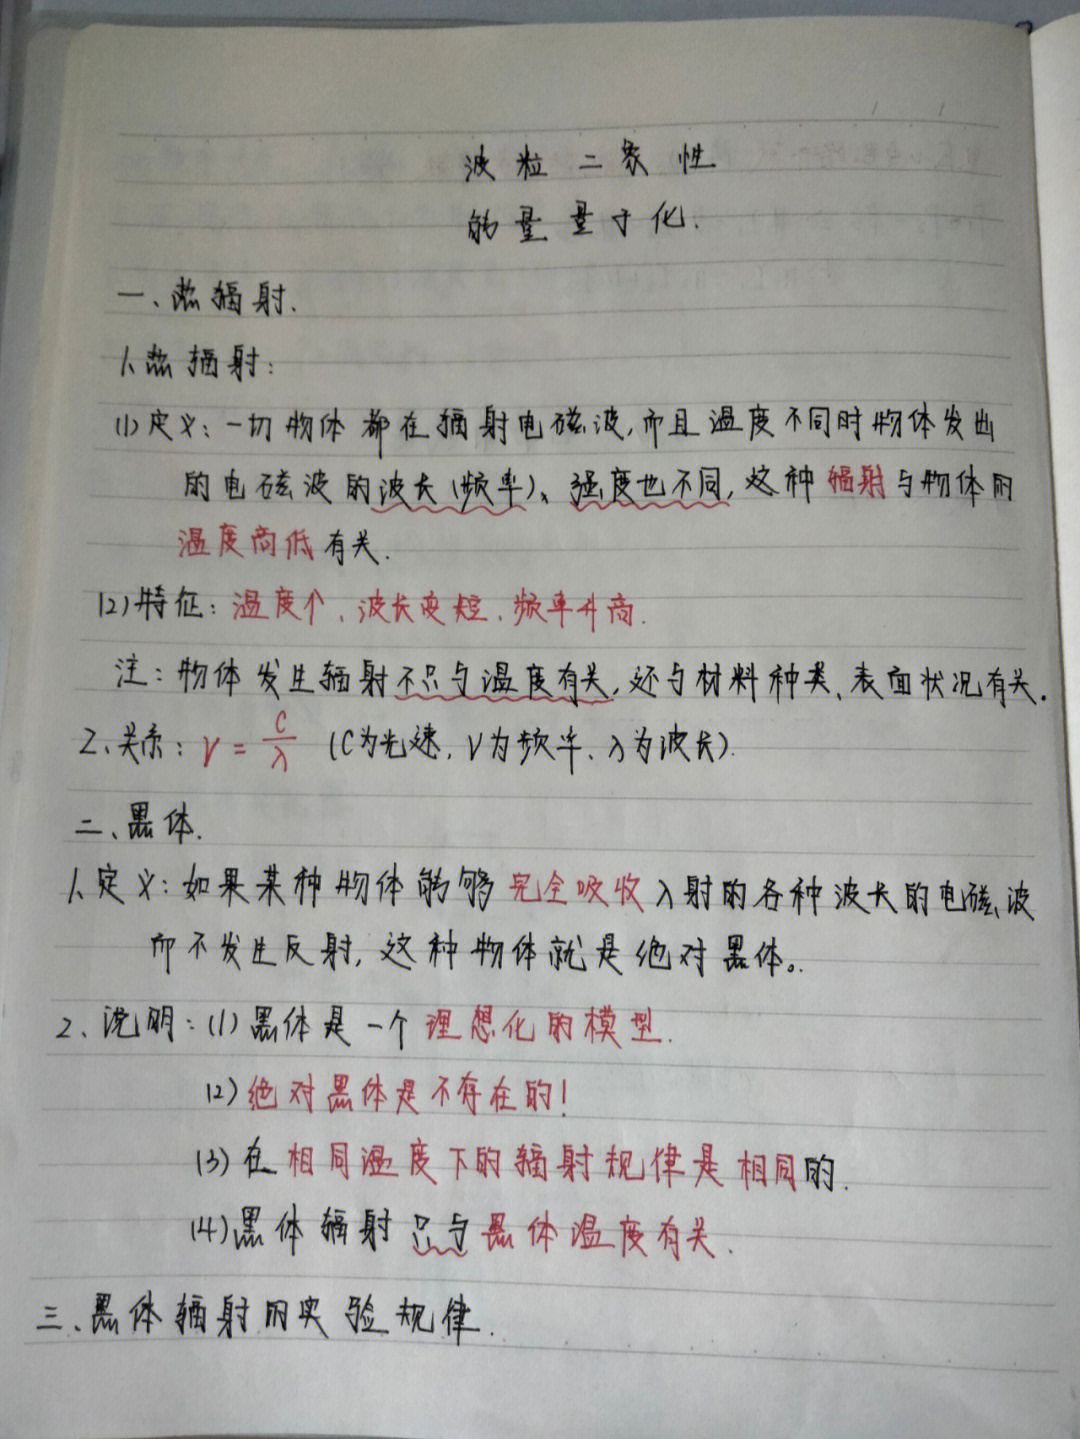 波粒二象性
能量量子化.
一、热辐射.
1、热辐射:
(1)定义:一切物体都在辐射电磁波,而且温度不同时物体发出
的电磁波的波长(频率)、强度也不同,这种辐射与物体的
温度高低有关.
(2)特征:温度个、波长变短、频率升高.
注:物体发生辐射不只与温度有关,还与材料种类、表面状况有关.
2、关系:ν=c/λ (C为光速,ν为频率、λ为波长).
二、黑体.
1、定义:如果某种物体能够完全吸收入射的各种波长的电磁波
而不发生反射,这种物体就是绝对黑体。
2、说明:(1)黑体是一个理想化的模型.
(2)绝对黑体是不存在的!
(3)在相同温度下的辐射规律是相同的.
(4)黑体辐射只与黑体温度有关.
三、黑体辐射的实验规律.